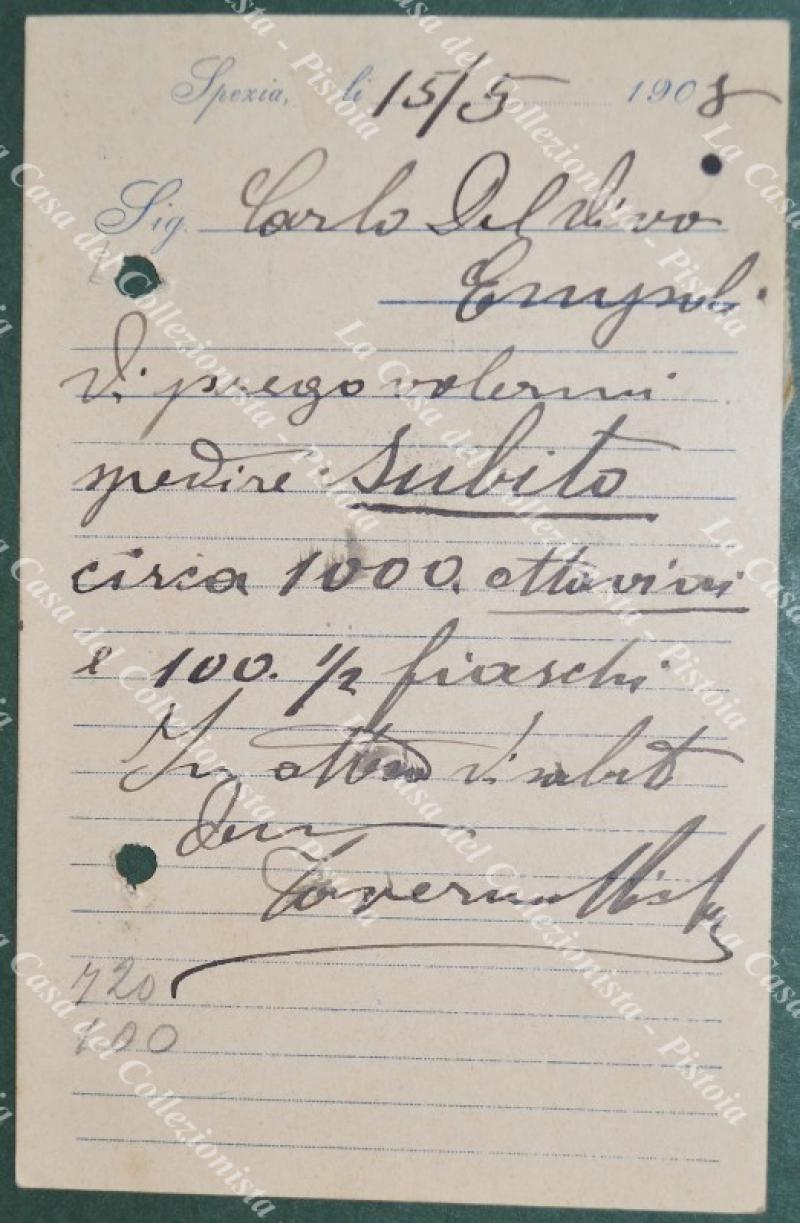 Spezia, li 15/5 1908
Sig. Carlo Del Vivo
Empoli
Vi prego volermi
spedire subito
circa 1000. ottavini
e 100. 1/2 fiaschi
In attesa vi saluto
Taverna
720
100
La Casa del Collezionista - Pistoia